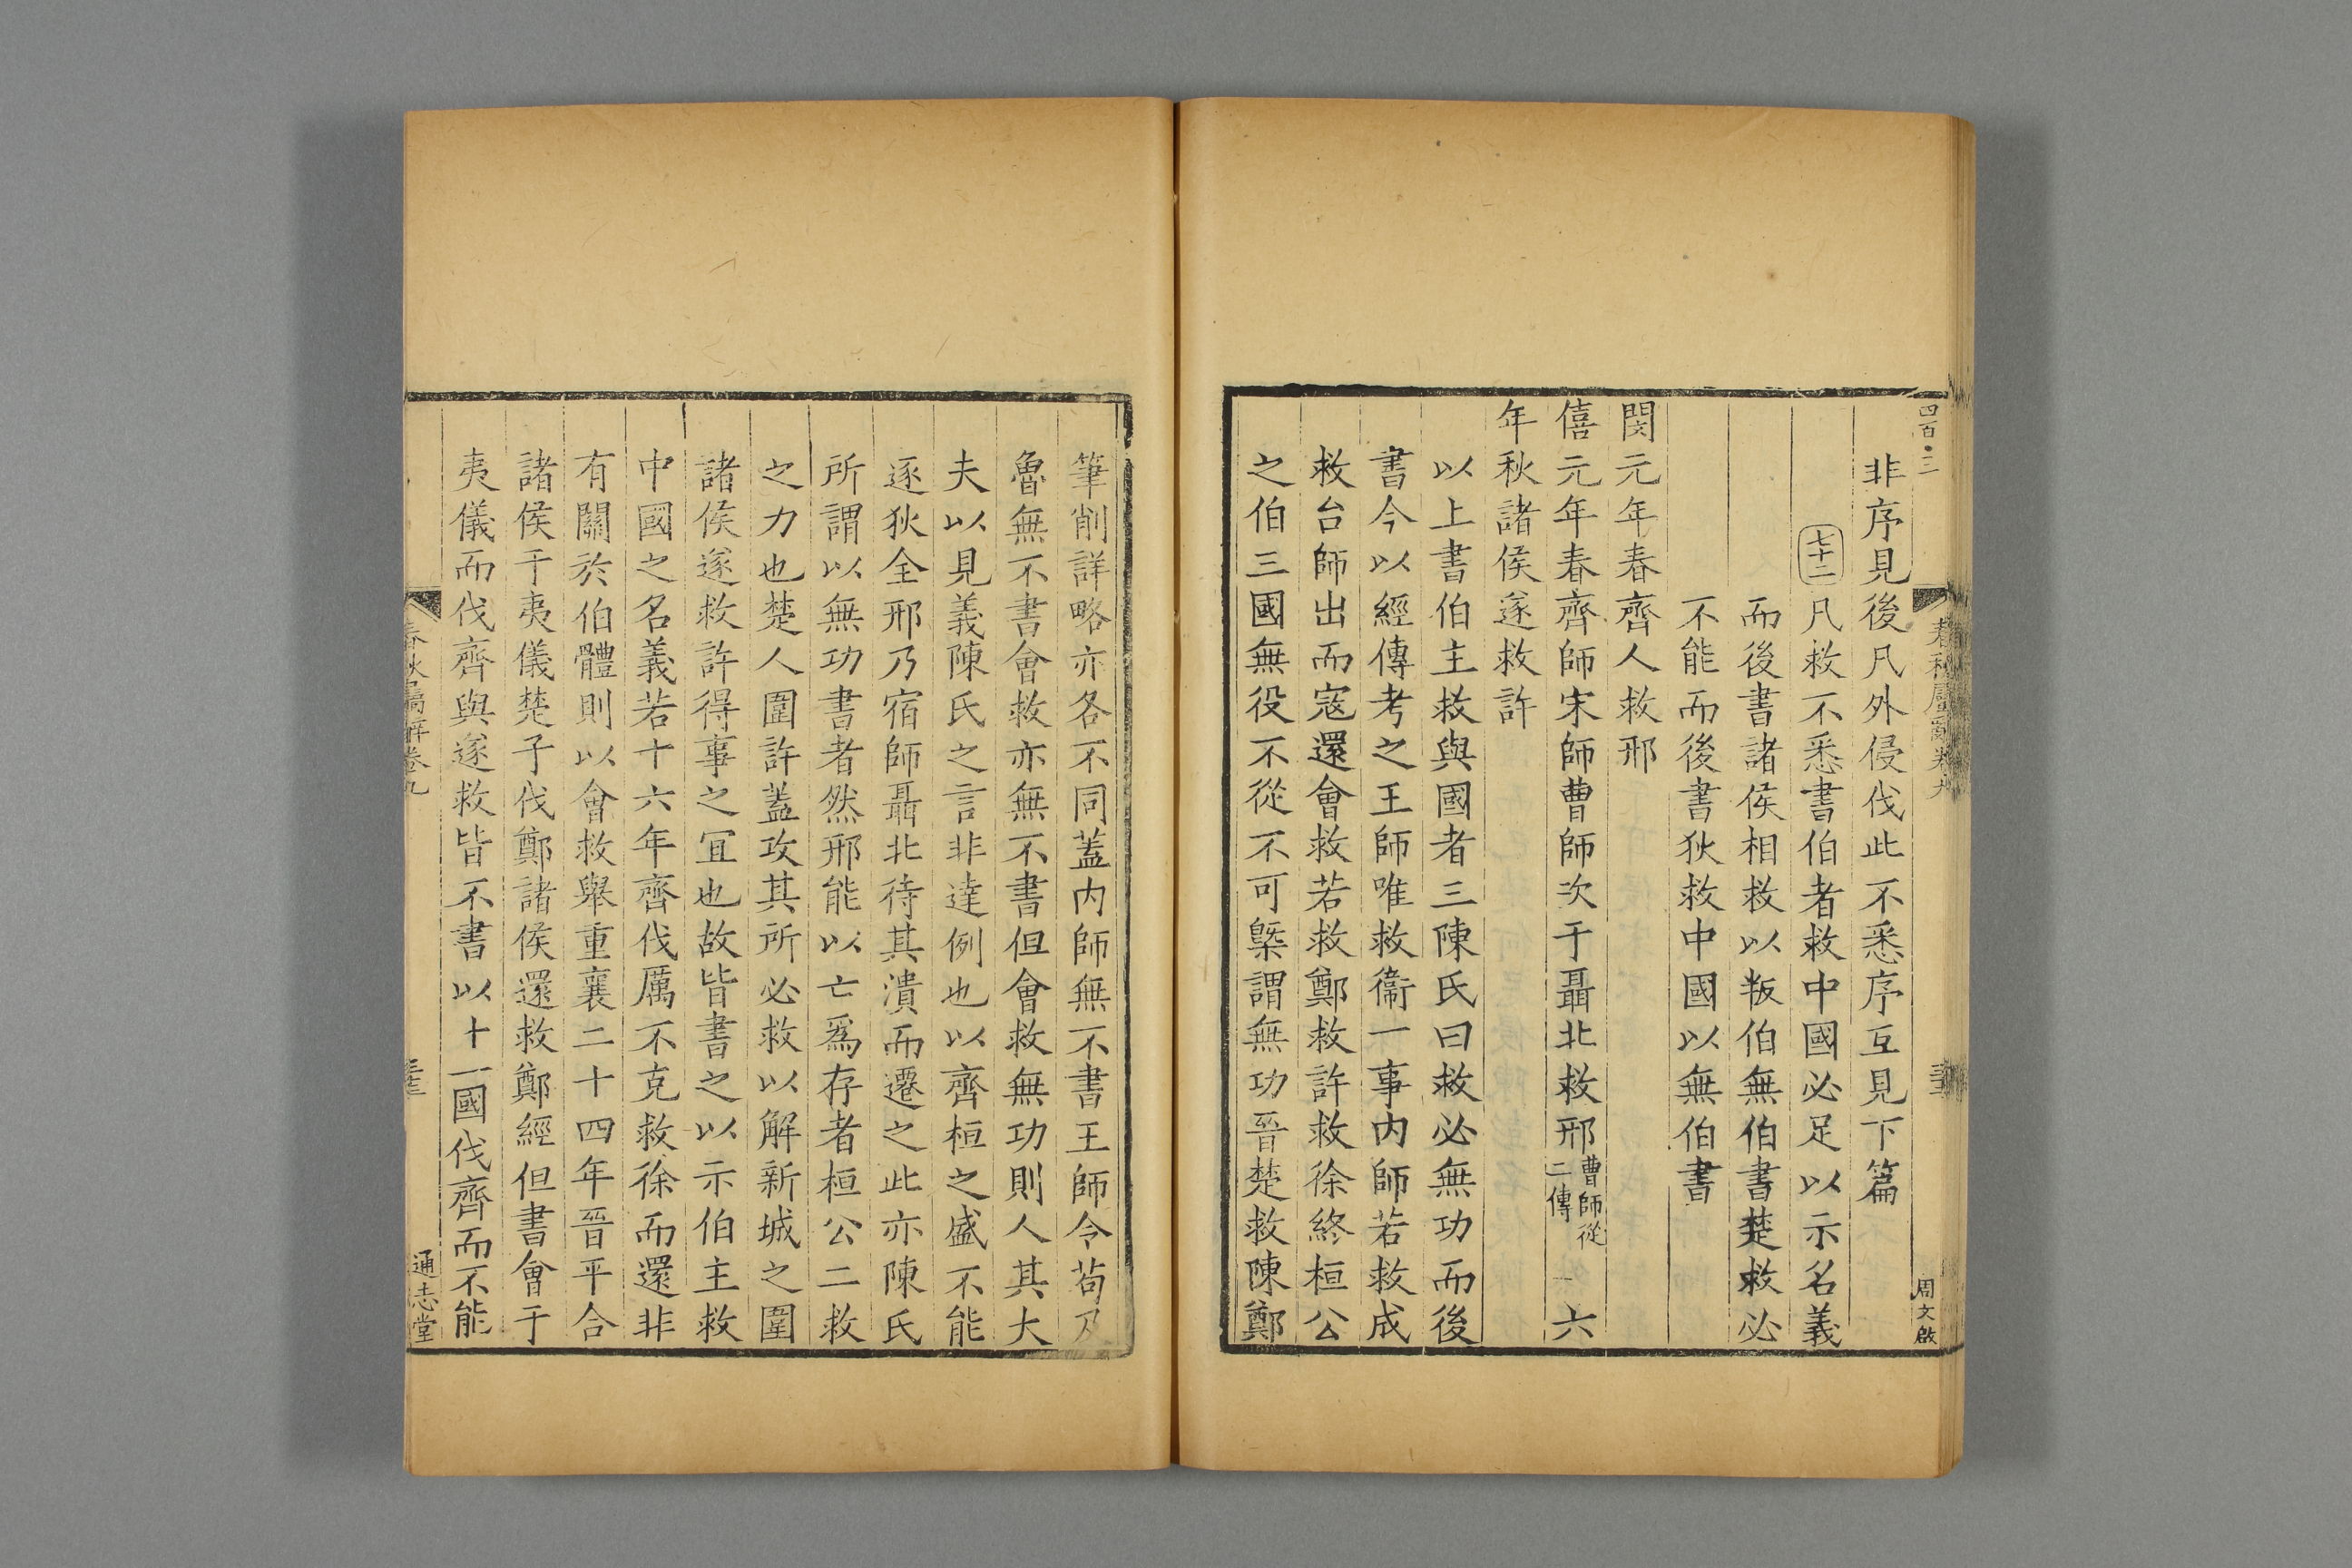 四百·三
春秋屬辭卷九
周文啟
非序見後凡外侵伐此不悉序互見下篇
七十二 凡救不悉書伯者救中國必足以示名義
而後書諸侯相救以叛伯無伯書楚救必
不能而後書狄救中國以無伯書
閔元年春齊人救邢
僖元年春齊師宋師曹師次于聶北救邢 曹師從二傳 六
年秋諸侯遂救許
以上書伯主救與國者三陳氏曰救必無功而後
書今以經傳考之王師唯救衞一事内師若救成
救台師出而寇還會救若救鄭救許救徐終桓公
之伯三國無役不從不可槩謂無功晉楚救陳鄭
筆削詳略亦各不同蓋内師無不書王師令苟及
魯無不書會救亦無不書但會救無功則人其大
夫以見義陳氏之言非達例也以齊桓之盛不能
逐狄全邢乃宿師聶北待其潰而遷之此亦陳氏
所謂以無功書者然邢能以亡爲存者桓公二救
之力也楚人圍許蓋攻其所必救以解新城之圍
諸侯遂救許得事之宜也故皆書之以示伯主救
中國之名義若十六年齊伐厲不克救徐而還非
有關於伯體則以會救舉重襄二十四年晉平合
諸侯于夷儀楚子伐鄭諸侯還救鄭經但書會于
夷儀而伐齊與遂救皆不書以十一國伐齊而不能
春秋屬辭卷九
通志堂